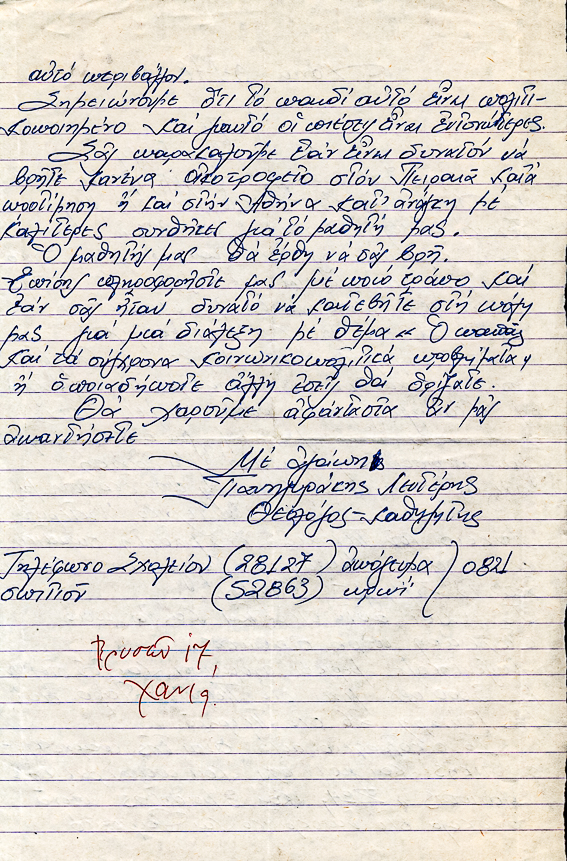 αὐτό περιβάλλον.
Σημειώνουμε ὅτι τό παιδί αὐτό εἶναι πολιτι-
κοποιημένο καί γι' αὐτό οἱ πιέσεις εἶναι ἐντονώτερες.
Σᾶς παρακαλοῦμε ἐάν εἶναι δυνατόν νά
βρῆτε κανένα οἰκοτροφεῖο στόν Πειραιᾶ κατά
προτίμηση ἤ καί στήν Ἀθήνα κατ' ἀνάγκη μέ
καλίτερες συνθῆκες γιά τό μαθητή μας.
Ὁ μαθητής μας θά ἔρθη νά σᾶς βρῆ.
Ἐπίσης πληροφορῆστε μας μέ ποιό τρόπο καί
ἐάν σᾶς ἦταν δυνατό νά κατεβῆτε στή πόλη
μας γιά μιά διάλεξη μέ θέμα "Ὁ παπᾶς
καί τά σύγχρονα κοινωνικοπολιτικά προβλήματα"
ἤ ὁποιαδήποτε ἄλλη ἐσεῖς θά ὁρίζατε.
Θά χαροῦμε ἀφάνταστα ἄν μᾶς
ἀπαντήσετε
Μέ ἀγάπη
Λευτέρης
Θεολόγος-καθηγητής
Τηλέφωνο Σχολείου (28127) ἀπόγευμα ) 0821
σπιτιοῦ (52863) πρωί
17,
Χανιά.